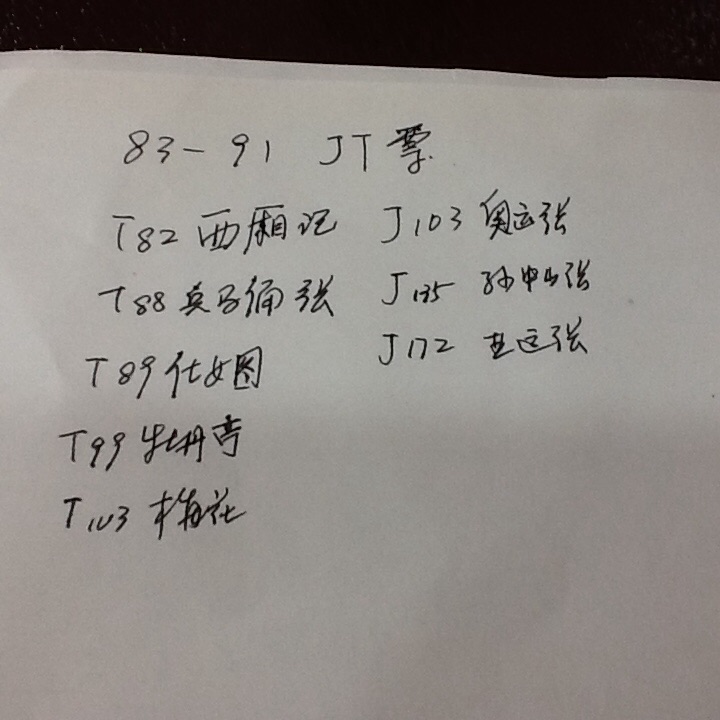 83-91 JT票
T82 西厢记
T88 兵马俑张
T89 仕女图
T99 牡丹亭
T103 梅花
J103 奥运张
J135 孙中山张
J172 亚运张